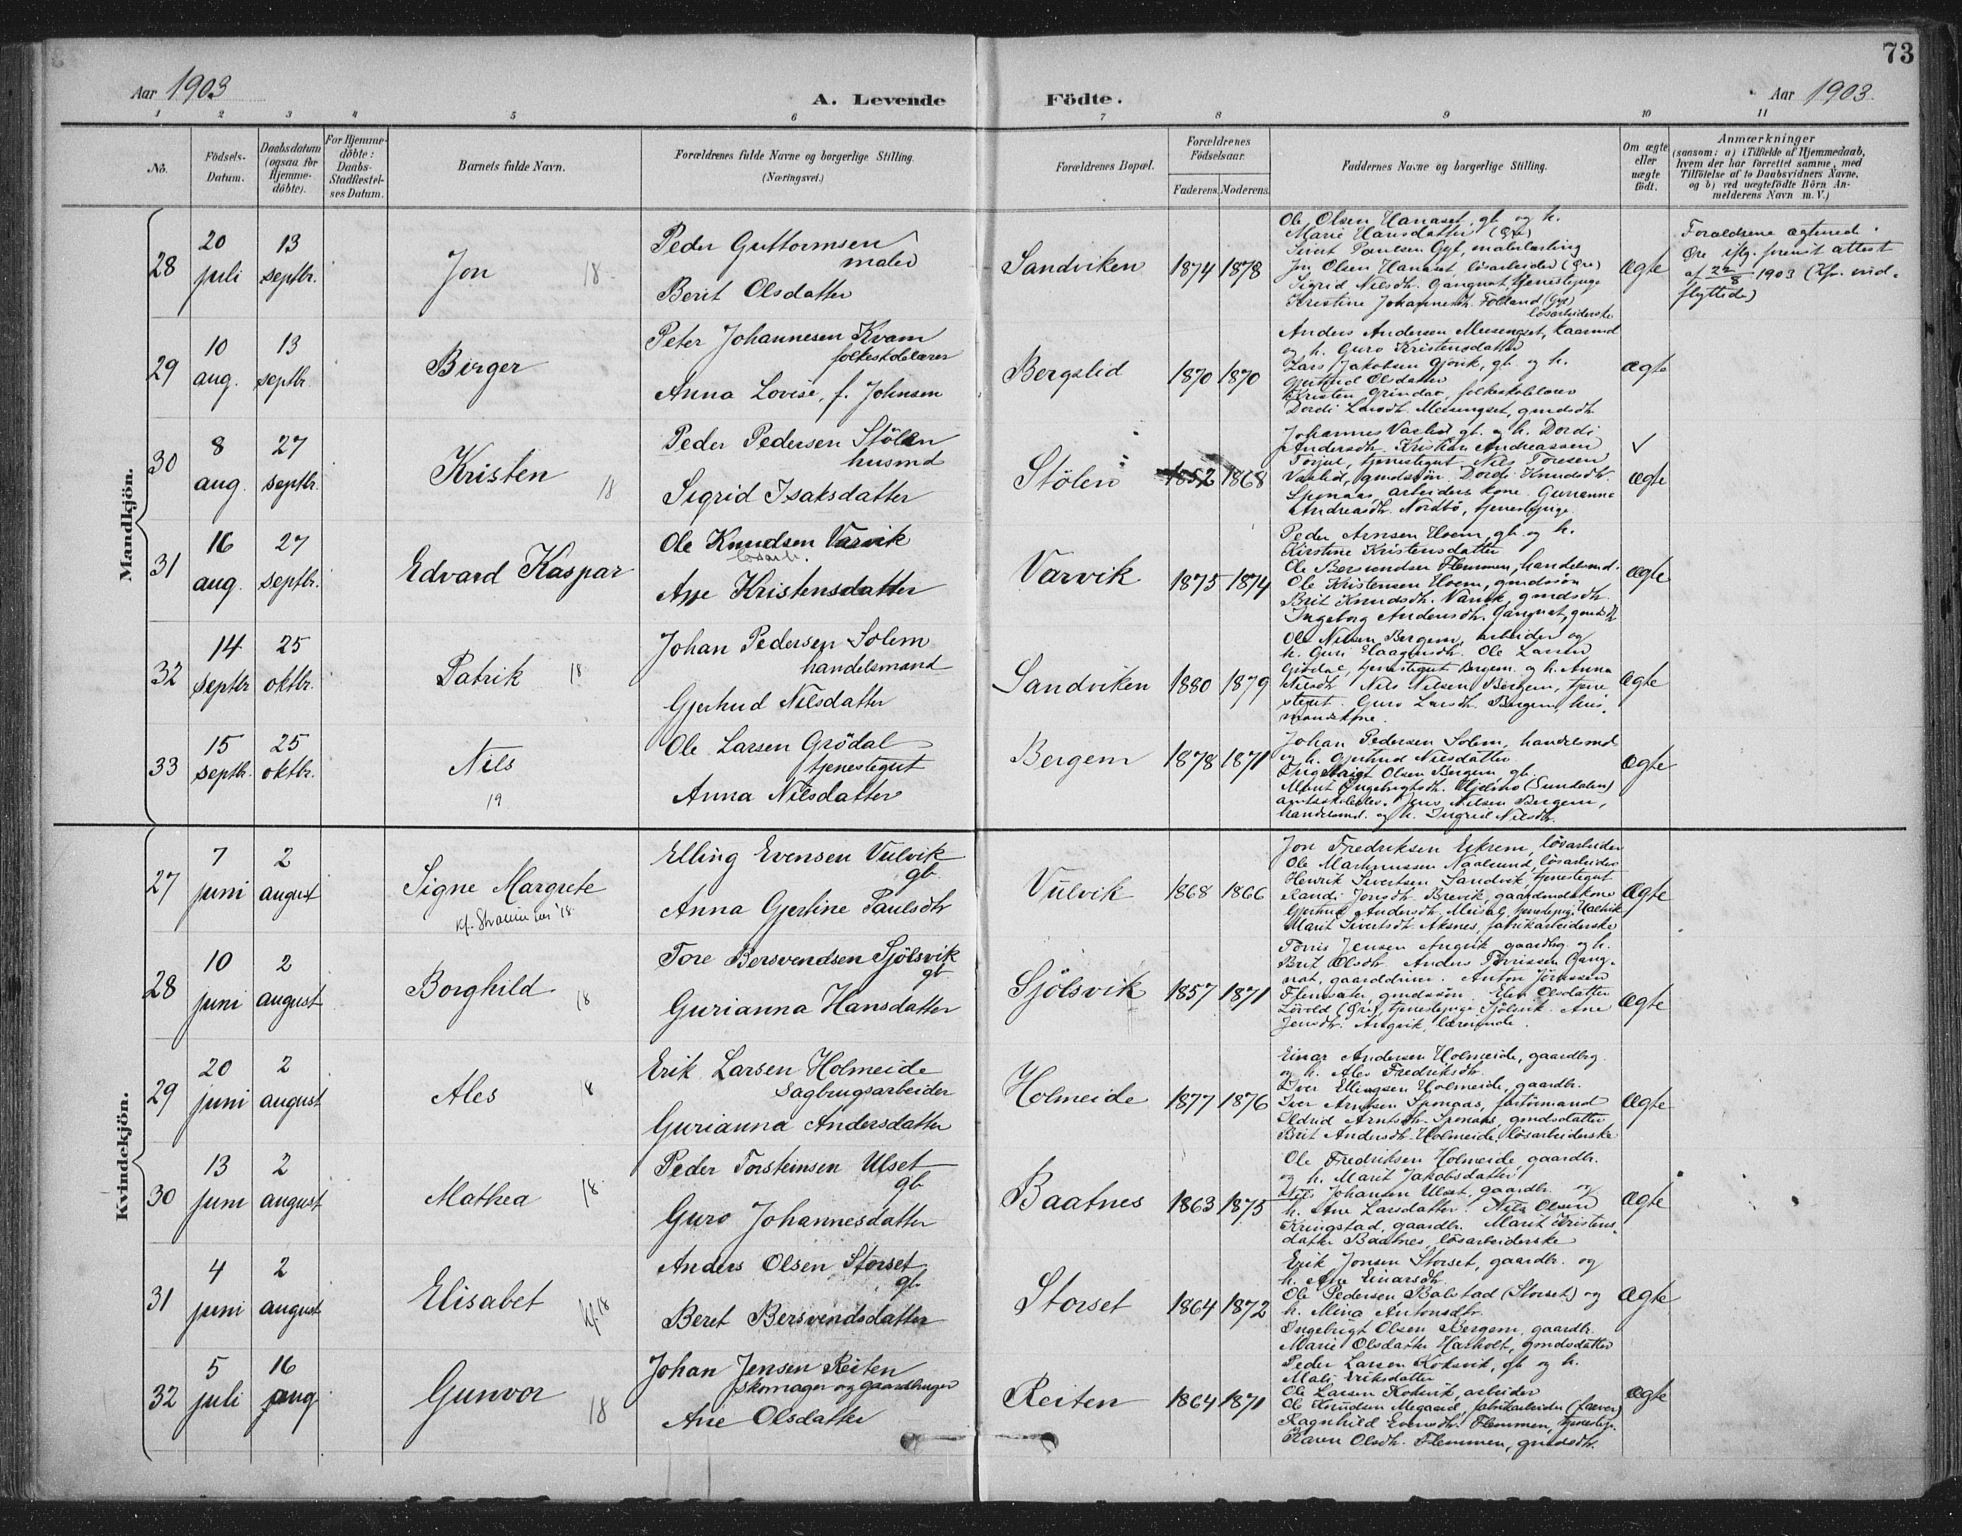 73
Aar 1903
A. Levende Födte.
Aar 1903
1 2 3 4 5 6 7 8 9 10 11
No.
Födsels-Datum.
Daabsdatum (ogsaa for Hjemme-döbte).
For Hjemme-döbte: Daabs-Stadfæstel-ses Datum.
Barnets fulde Navn.
Forældrenes fulde Navne og borgerlige Stilling.
(Næringsvei.)
Forældrenes Bopæl.
Forældrenes Födselsaar.
Faderens. Moderens.
Faddernes Navne og borgerlige Stilling.
Om ægte eller uægte födt.
Anmærkninger
(saasom: a) i Tilfælde af Hjemmedaab,
hvem der har forrettet samme, med
Tilföielse af to Daabsvidners Navne,
og b) ved uægtefödte Börn An-
melderens Navn m. V.)
Mandkjön.
28
20 juli
13 septbr.
Jon 18
Peder Guttormsen
maler
Berit Olsdatter
Sandviken
1874 1878
Ole Olsen Hanaset, gb. og h.
Marie Hansdatter (Öre)
Sivert Paulsen Gyl, malerlærling
Jon Olsen Hanaset, lösarbeider (Öre)
Sigrid Nilsdh. Gangnat, tjenestepige
Kristine Johannesdh.
lösarbeiderske
ægte
Forældrene ægteviede
Öre iflg. fremvist attest
af 22/8 1903 (
flyttede)
29
10 aug.
13 septbr.
Birger
Peter Johannesen Kvam
folkeskolelærer
Anna Lovise, f. Johnsen
Bergslid
1870 1870
Anders Andersen Meisingset, kaarmd
og h. Guro Kristensdatter
Lars Jakobsen Gjörik, gb. og h.
Gjertrud Olsdatter
Kristen Grindac, folkeskolelærer
Dordi Larsdh. Meisingset, gmdsdh.
ægte
30
8 aug.
27 septbr.
Kristen 18
Peder Pedersen Stölen
husmd
Sigrid Isaksdatter
Stölen
1852 1868
Johannes Vaslid gb. og h. Dordi
Andersdh. Kristian Andreassen
tjenestegut. Nils Toresen
Vaslid, gmdssön. Dordi Knudsdh.
Sponaas arbeiders kone. Gurianna
Andreasdh. Nordbö, tjenestepige.
ægte
31
16 aug.
27 septbr.
Edvard Kaspar
Ole Knudsen Varvik
lösarb.
Ane Kristensdatter
Varvik
1875 1874
Peder Arnsen Hoem, gb. og h.
Kirstine Kristensdatter
Ole Bersvendsen Flemmen, handelsmd.
Ole Kristensen Hoem, gmdssön
Brit Knudsdh. Varvik, gmdsdh.
Ingeborg Andersdh. Gangnat, gmdsdh
ægte
32
14 septbr
25 oktbr.
Patrik 18
Johan Pedersen Solem
handelsmand
Gjertrud Nilsdatter
Sandviken
1880 1879
Ole Nilsen Bergem, arbeider og
h. Guri Haagensdh. Ole Larsen
Grödal, tjenestegut Bergem. og h. Anna
Nilsdh. Nils Nilsen Bergem, tjene
stegut. Guro Larsdh. Bergem, hus-
mandskone.
ægte
33
15 septbr.
25 oktbr.
Nils
19
Ole Larsen Grödal
tjenestegut
Anna Nilsdatter
Bergem
1878 1871
Johan Pedersen Solem, handelsmd
og h. Gjertrud Nilsdatter
Ingebrigt Olsen Bergem gb.
Marit Ingebrigtsdh. (Sundalen)
Jens Nilsen Bergem,
handelsmd. og h. Ingrid Nilsdh.
ægte
Kvindekjön.
27
7 juni
2 august
Signe Margrete
Elling Evensen Vulvik
gb.
Anna Gjertine Paulsdtr
Vulvik
1868 1866
Jon Fredriksen Eikrem, lösarbeider
Ole Martinussen Naalsund, lösarbeider
Henrik Sivertsen Sandvik, tjenestegut
Randi Jonsdh. Brevik, gaardmandskone
Gjertrud Andersdh. Meisal, tjenestepige
Marit Sivertsdh. Aksnes, fabrikarbeiderske
ægte
28
10 juni
2 august
Borghild 18
Tore Bersvendsen Sjölsvik
gb.
Gurianna Hansdatter
Sjölsvik
1857 1871
Torris Jensen Angvik gaardbg. og h.
Brit Olsdh. Anders Torrissen Gang-
nat, gaarddreng. Anton Jörassen
Flemsæter, gmdssön. Elen Olsdatter
Lövold (Öre), tjenestepige Sjölsvik. Ane
Jensdh. Angvik, lærerinde.
ægte
29
20 juni
2 august
Ales 18
Erik Larsen Holmeide
Sagbrugsarbeider
Gurianna Andersdatter
Holmeide
1877 1876
Einar Andersen Holmeide, gaardbrg.
og h. Ales Fredriksdh.
Iver Ellingsen Holmeide, gaardbr.
Iver Arntsen Sponaas, fartörmand
Eldrid Arntsdh. Sponaas, gmdsdatter
Brit Andersdh. Holmeide, lösarbeiderske
ægte
30
13 juni
2 august
Mathea 18.
Peder Torsteinsen Ulset
gb.
Guro Johannesdatter
Baatnes
1863 1875
Ole Fredriksen Holmeide, gaardbr.
og h. Marit Jakobsdatter
Nils Johansen Ulset, gaardbr. og
h. Ane Larsdatter. Nils Olsen
Kringstad, gaardbr. Marit Kristens-
datter Baatnes, lösarbeiderske
ægte
31
4 juni
2 august
Elisabet kf. 18
Anders Olsen Storset
gb.
Beret Bersvendsdatter
Storset
1864 1872
Erik Jonsen Storset, gaardbr. og
h. Ane Einarsdh.
Ole Pedersen Balstad (Storset) og
h. Mina Antonsdtr.
Ingebrigt Olsen Bergem, gaardbr.
Marie Olsdatter Hasholt, gmdsdatter
ægte
32
5 juli
16 aug
Gunvor 18
Johan Jensen Reiten
skomager og gaardbruger
Ane Olsdatter
Reiten
1864 1871
Peder Larsen Koksvik, gb og h.
Mali Eriksdatter
Ole Larsen Koksvik, arbeider
Ole Knudsen Megaard, fabrikarbeider (farver)
Ragnhild Evensdh. Flemmen, tjenestepg.
Karen Olsdh. Flemmen, gmdsdh.
ægte